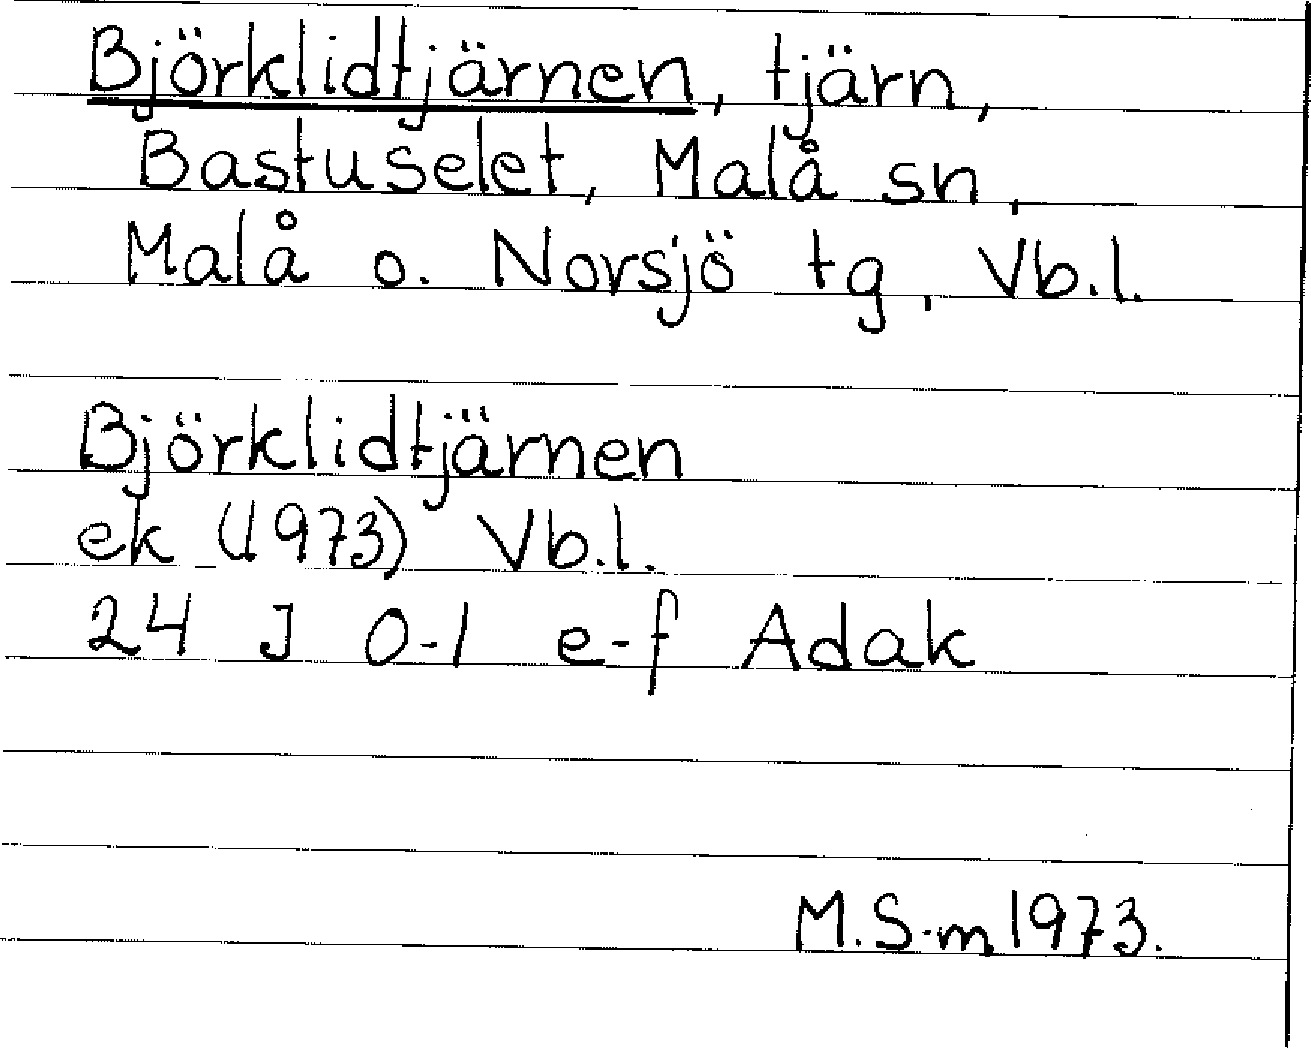 Björklidtjärnen, tjärn,
Bastuselet, Malå sn,
Malå o. Norsjö tg, Vb.l.
Björklidtjärnen
ek (1973) Vb.l.
24 J 0-1 e-f Adak
M.S-m 1973.